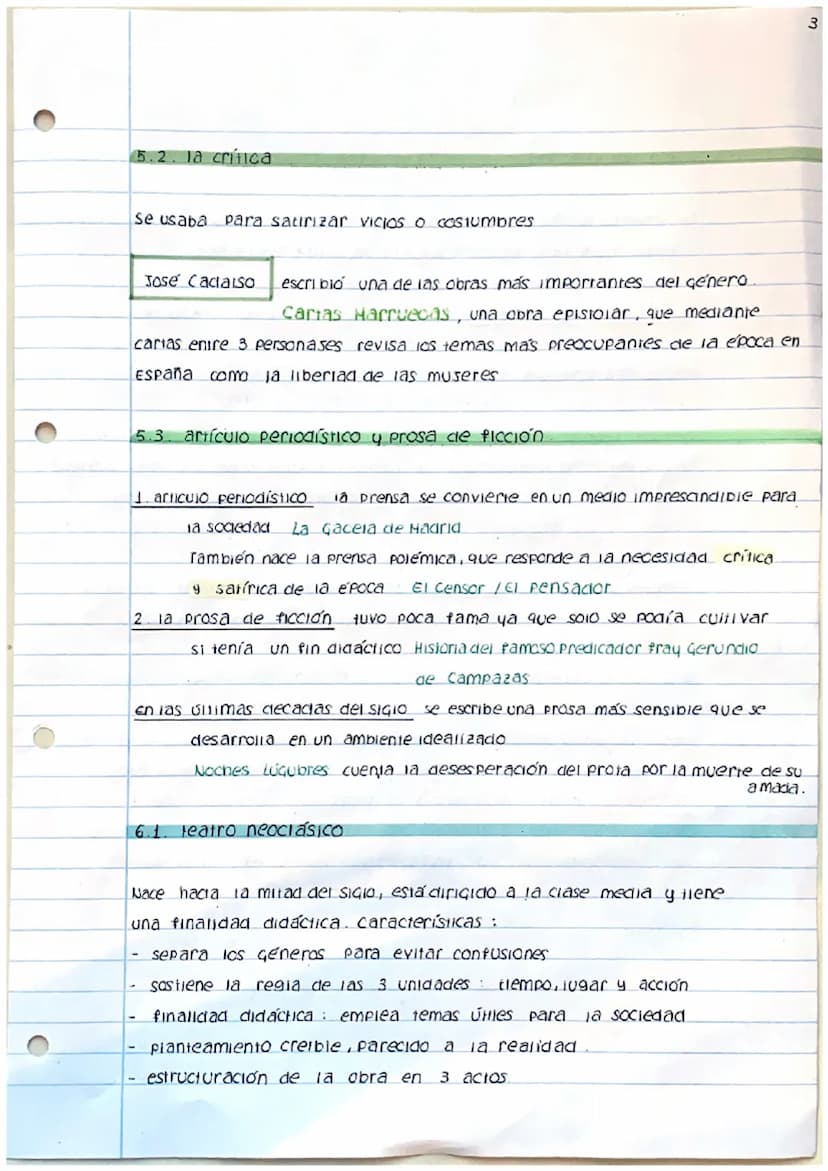 3
5.2. la crítica
Se usaba para satirizar vicios o costumbres
José Cadalso escribió una de las obras más importantes del género.
Cartas Marruecas, una obra epistolar, que mediante
cartas entre 3 personajes revisa los temas más preocupantes de la época en
España como la libertad de las mujeres
5.3. artículo periodístico y prosa de ficción
1. artículo periodístico la prensa se convierte en un medio imprescindible para
la sociedad La Gaceta de Madrid
También nace la prensa polémica, que responde a la necesidad crítica
y satírica de la época El Censor / El Pensador
2. la prosa de ficción tuvo poca fama ya que solo se podía cultivar
si tenía un fin didáctico Historia del famoso predicador fray Gerundio
de Campazas
en las últimas décadas del siglo se escribe una prosa más sensible que se
desarrolla en un ambiente idealizado
Noches Lúgubres cuenta la desesperación del prota por la muerte de su
amada.
6.1. teatro neoclásico
Nace hacia la mitad del siglo, está dirigido a la clase media y tiene
una finalidad didáctica. Características :
- separa los géneros para evitar confusiones
- sostiene la regla de las 3 unidades : tiempo, lugar y acción
- finalidad didáctica : emplea temas útiles para la sociedad
- planteamiento creíble, parecido a la realidad.
- estructuración de la obra en 3 actos